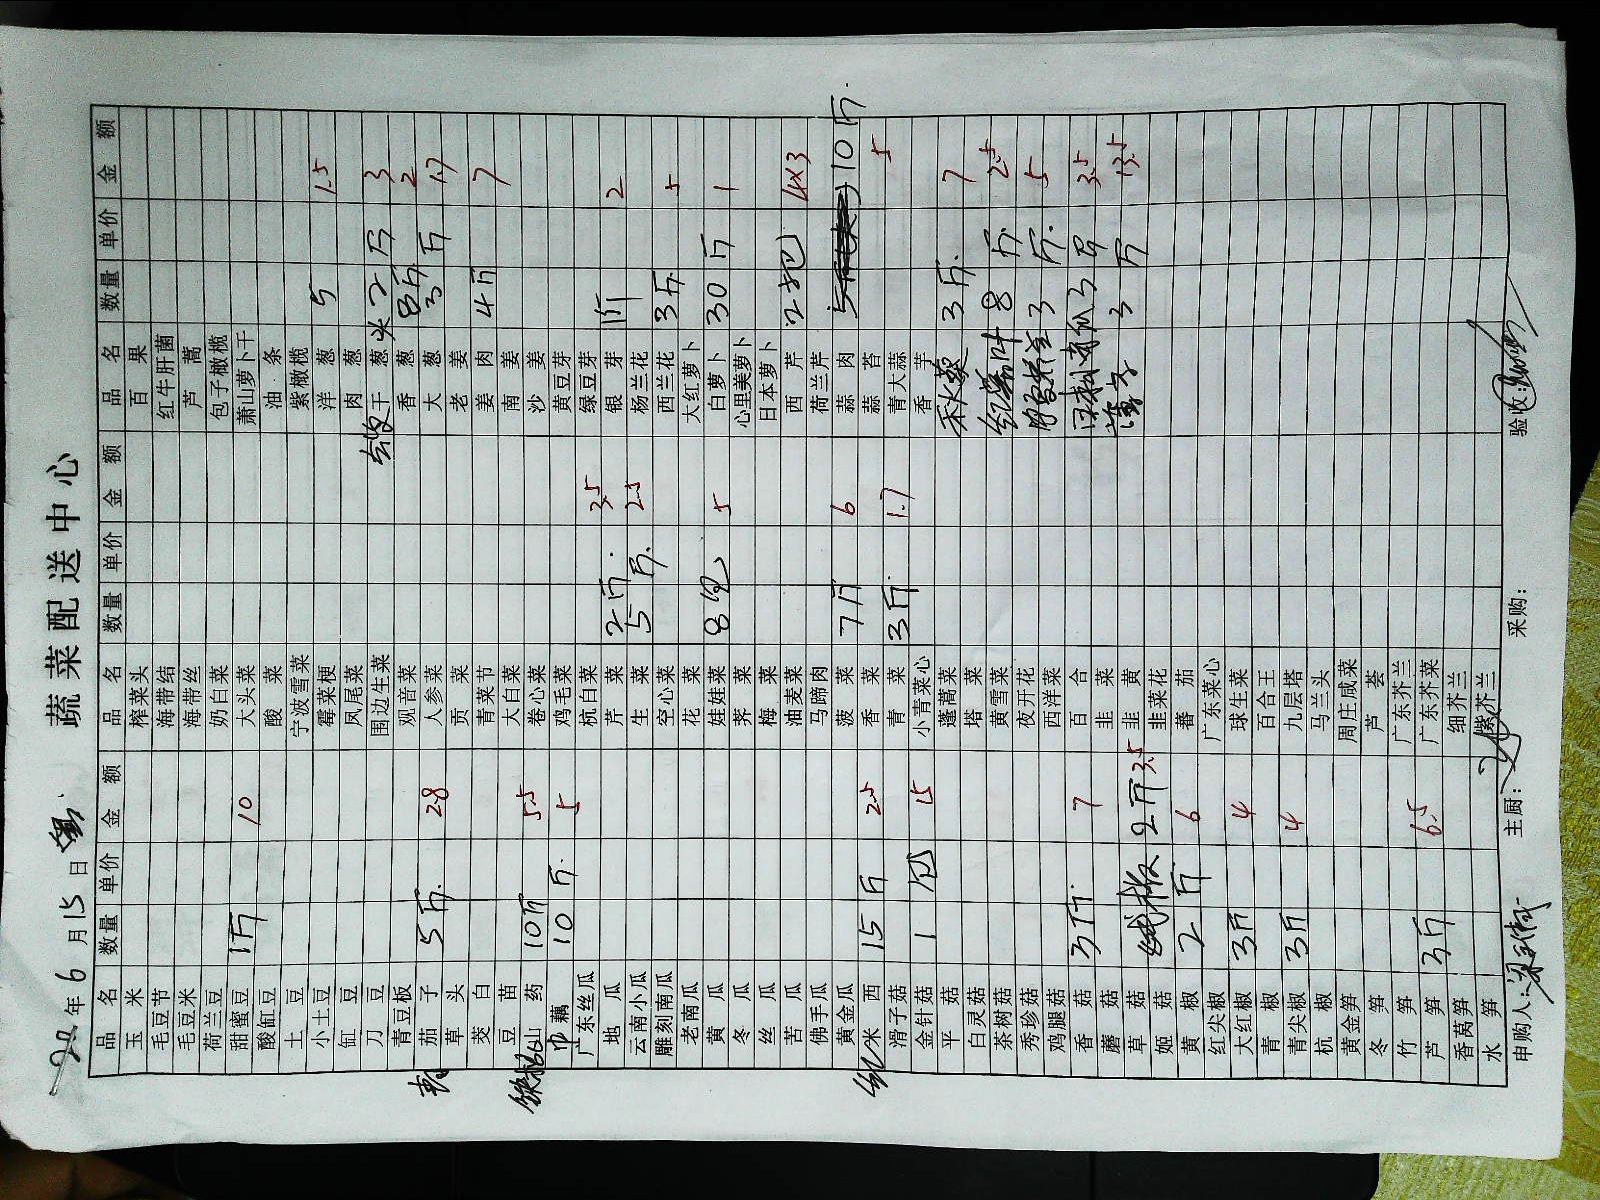 蔬菜配送中心
22年6月15日
品名 数量 单价 金额 品名 数量 单价 金额 品名 数量 单价 金额
玉米 榨菜头 百果
毛豆节 海带结 红牛肝菌
毛豆米 海带丝 芦蒿
荷兰豆 奶白菜 包子橄榄
甜蜜豆 1斤 10 大头菜 萧山萝卜干
酸缸豆 酸菜 油条
土豆 宁波雪菜 紫橄榄
小土豆 霉菜梗 洋葱 5 1.5
缸豆 凤尾菜 肉葱
刀豆 围边生菜 干葱头 2斤 3
青豆板 观音菜 香葱 8斤 2
茄子 5斤 2.8 人参菜 大葱 3斤 1.7
草头 贡菜 老姜
茭白 青菜节 姜肉 4斤 7
豆苗 大白菜 南姜
铁棍山药 10斤 5.5 卷心菜 沙姜
藕 10斤 5 鸡毛菜 黄豆芽
广东丝瓜 杭白菜 绿豆芽
地瓜 芹菜 2斤 3.5 银芽 1斤 2
云南小瓜 生菜 5斤 2.5 杨兰花
雕刻南瓜 空心菜 西兰花 3斤 5
老南瓜 花菜 大红萝卜
黄瓜 娃娃菜 8包 5 白萝卜 30斤 1
冬瓜 荠菜 心里美萝卜
丝瓜 梅菜 日本萝卜
苦瓜 油麦菜 西芹 2把 4x3
佛手瓜 马蹄肉 荷兰芹
黄金瓜 菠菜 7斤 6 蒜肉 10斤
红米西 15斤 2.5 香菜 蒜苔 5
滑子菇 青菜 3斤 1.7 青大蒜
金针菇 1包 15 小青菜心 香芋
平菇 蓬蒿菜 秋葵 3斤 7
白灵菇 塔菜
茶树菇 黄雪菜 红薯叶 8斤 2.5
秀珍菇 夜开花 3斤 5
鸡腿菇 西洋菜
香菇 3斤 7 百合 3斤 3.5
蘑菇 韭菜 3斤 13.5
草菇 2斤 3.5 韭黄
姬菇 韭菜花
黄椒 2斤 6 蕃茄
红尖椒 广东菜心
大红椒 3斤 4 球生菜
青椒 百合王
青尖椒 3斤 4 九层塔
杭椒 马兰头
黄金笋 周庄咸菜
冬笋 芦荟
竹笋 广东芥兰
芦笋 3斤 6.5 广东芥菜
香莴笋 细芥兰
水笋 紫芥兰
申购人: 主厨: 采购: 验收: